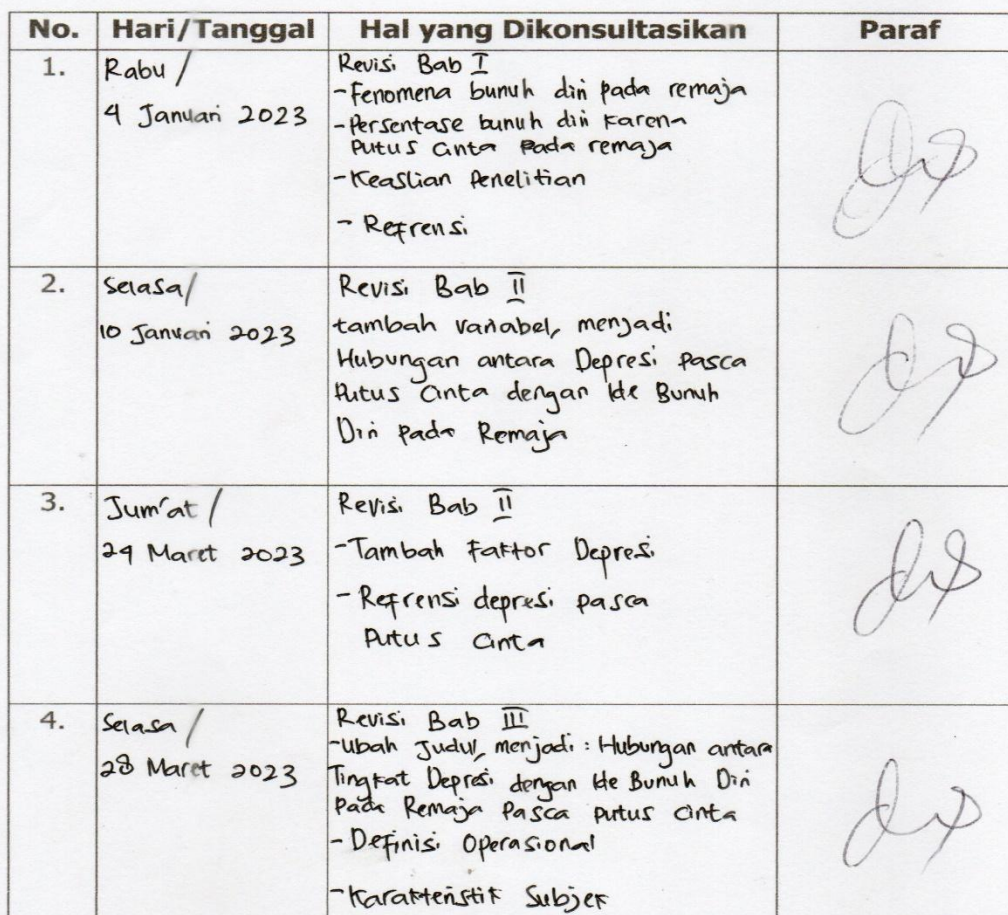 No. Hari/Tanggal Hal yang Dikonsultasikan Paraf
1. Rabu /
4 Januari 2023
Revisi Bab I
- Fenomena bunuh diri pada remaja
- Persentase bunuh diri karena
Putus Cinta Pada remaja
- Keaslian Penelitian
- Refrensi
2. Selasa/
10 Januari 2023
Revisi Bab II
tambah variabel, menjadi
Hubungan antara Depresi Pasca
Putus Cinta dengan Ide Bunuh
Diri Pada Remaja
3. Jum'at /
24 Maret 2023
Revisi Bab II
- Tambah Faktor Depresi
- Refrensi depresi pasca
Putus Cinta
4. Selasa /
28 Maret 2023
Revisi Bab III
- Ubah Judul, menjadi : Hubungan antara
Tingkat Depresi dengan Ide Bunuh Diri
Pada Remaja Pasca putus cinta
- Definisi Operasional
- Karakteristik Subjek